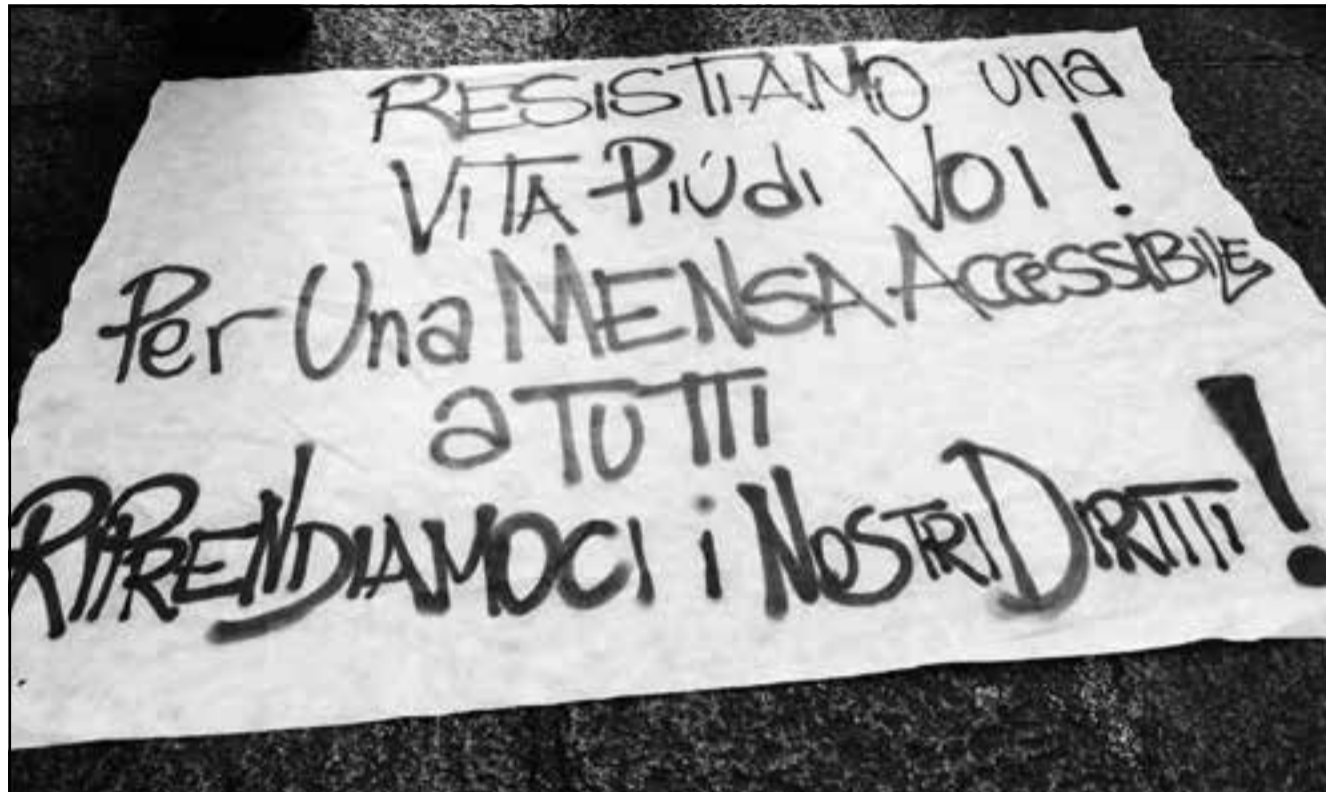 RESISTIAMO una
VITA PIÚ di VOI !
Per Una MENSA ACCESSIBILE
a TUTTI
RIPRENDIAMOCI i NOSTRI DIRITTI !